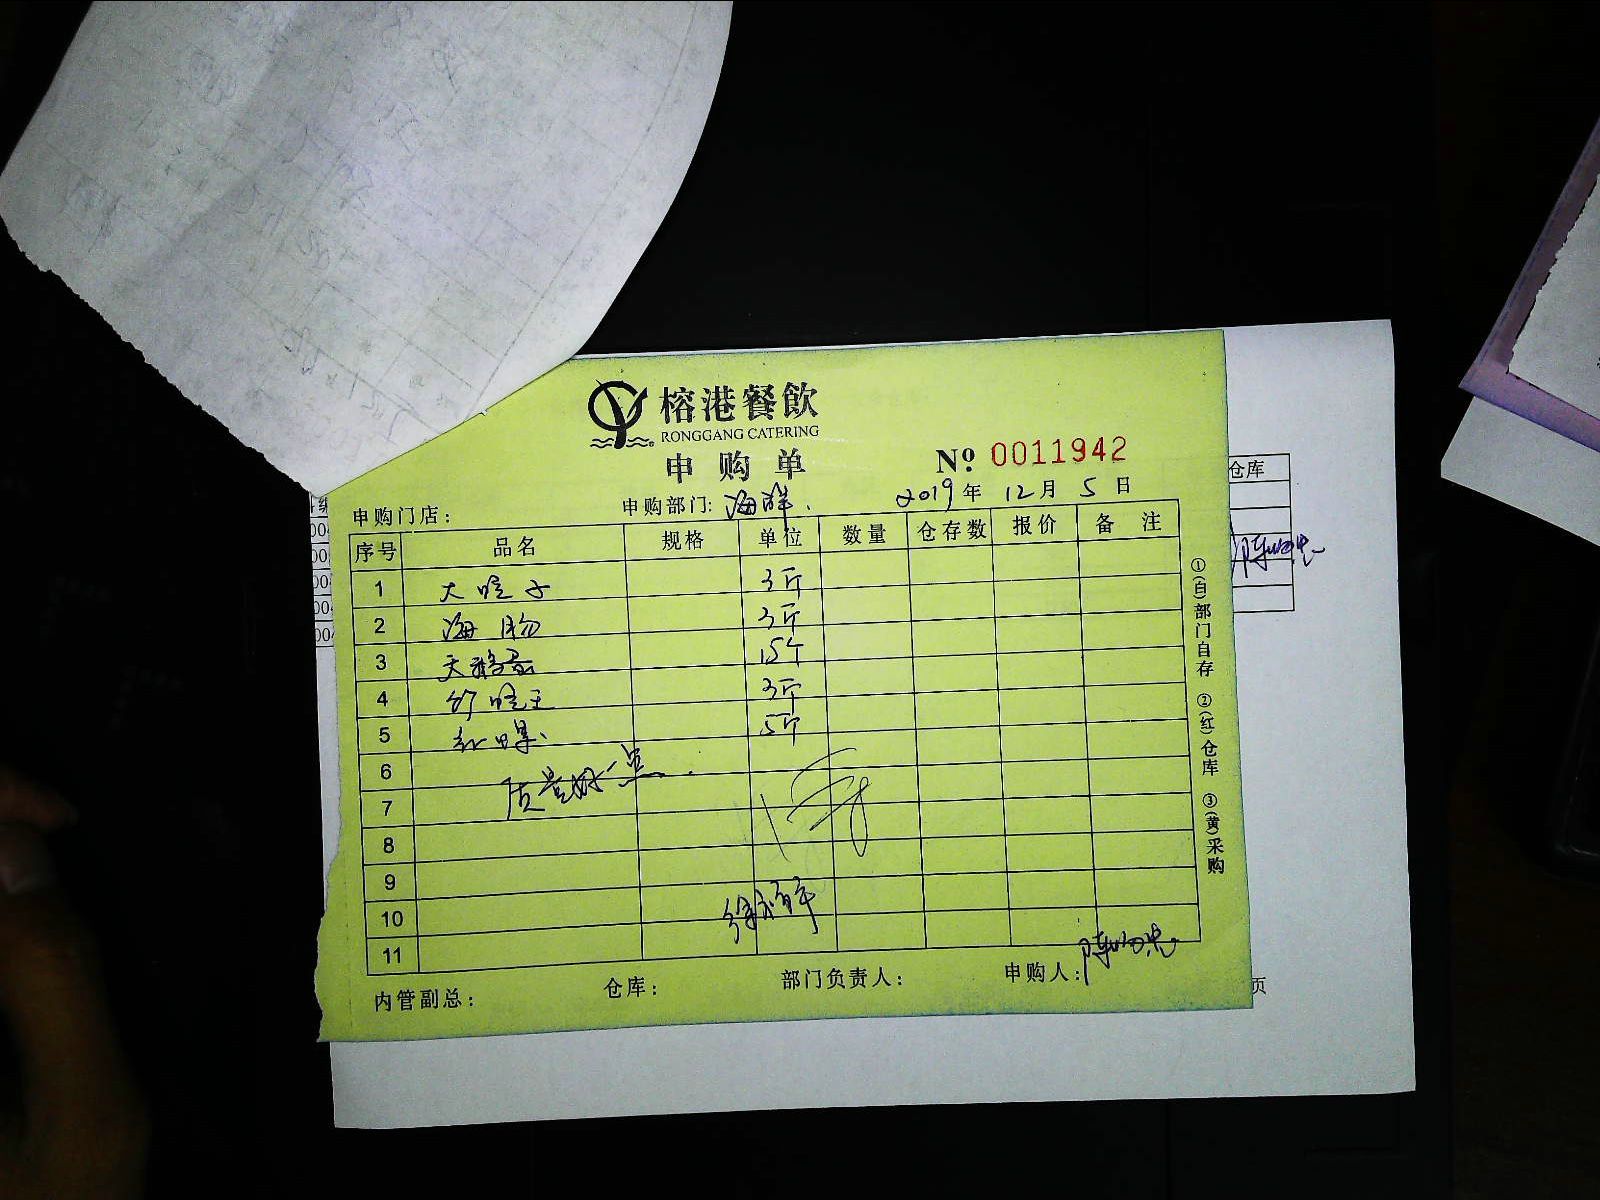 榕港餐飲
RONGGANG CATERING
申购单
№ 0011942
申购门店：
申购部门: 海鲜.
2019年 12月 5日
序号 品名 规格 单位 数量 仓存数 报价 备注
1 大蛏子 3斤
2 海肠 3斤
3 天鹅蛋 15个
4 竹蛏王 3斤
5 5斤
6
质量好一点.
7
8
9
10
11
内管副总：
仓库：
部门负责人：
申购人:
①(白)部门自存 ②(红)仓库 ③(黄)采购
仓库
页